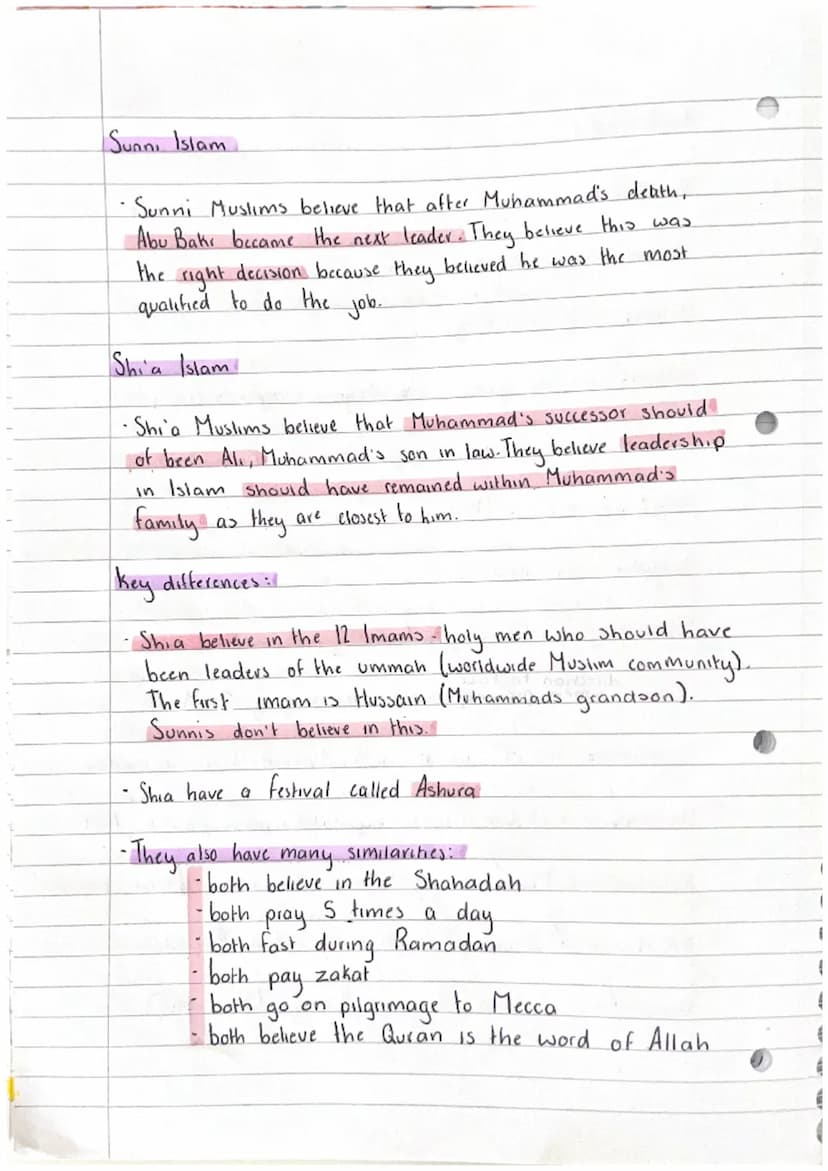 Sunni Islam
· Sunni Muslims believe that after Muhammad's death,
Abu Bakr became the next leader. They believe this was
the right decision because they believed he was the most
qualified to do the job.
Shi'a Islam
· Shi'a Muslims believe that Muhammad's successor should
of been Ali, Muhammad's son in law. They believe leadership
in Islam should have remained within Muhammad's
family as they are closest to him.
Key differences:
· Shia believe in the 12 Imams - holy men who should have
been leaders of the ummah (worldwide Muslim community).
The first imam is Hussain (Muhammads grandson).
Sunnis don't believe in this.
· Shia have a festival called Ashura
· They also have many similarities:
- both believe in the Shahadah
- both pray 5 times a day
- both fast during Ramadan
- both pay zakat
- both go on pilgrimage to Mecca
- both believe the Quran is the word of Allah